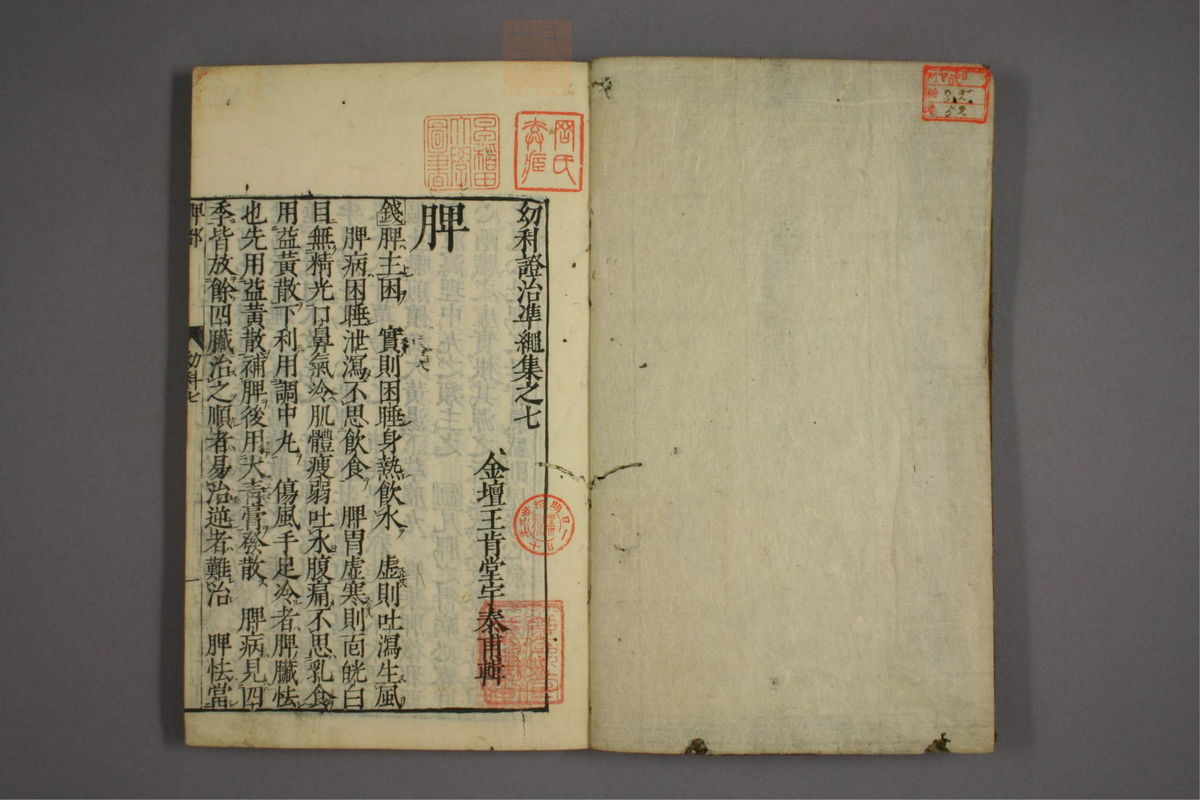 幼科證治準繩集之七
金壇王肯堂宇泰甫輯
脾
錢脾主困　實則困睡身熱飲水　虛則吐瀉生風
脾病困睡泄瀉不思飲食　脾胃虛寒則面㿠白
目無精光口鼻氣冷肌體瘦弱吐水腹痛不思乳食
用益黃散下利用調中丸　傷風手足冷者脾臟怯
也先用益黃散補脾後用大青膏發散　脾病見四
季皆放餘四臟治之順者易治逆者難治　脾怯當
脾部
幼科七
早稻田大學圖書
岡氏